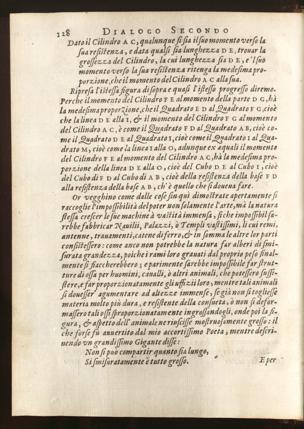 128 DIALOGO SECONDO
Dato il Cilindro A C, qualunque si sia il suo momento verso la
sua resistenza, e data qualsi sia lunghezza D E, trouar la
grossezza del Cilindro, la cui lunghezza sia D E, e 'l suo
momento verso la sua resistenza ritenga la medesima pro-
porzione, che il momento del Cilindro A C alla sua.
Ripresa l'istessa figura di sopra e quasi l'istesso progresso diremo.
Perche il momento del Cilindro F E al momento della parte D G, hà
la medesima proporzione, che il Quadrato E D al Quadrato F G, cioè
che la linea D E alla I, & il momento del Cilindro F G al momento
del Cilindro A C, è come il Quadrato F D al Quadrato A B, cioè co-
me il Quadrato D E al Quadrato I, cioè come il Quadrato I al Qua-
drato M, cioè come la linea I alla O, adunque ex æquali il momento
del Cilindro F E al momento del Cilindro A C, hà la medesima pro-
porzione della linea D E alla O, cioè del Cubo D E al Cubo I, cioè
del Cubo di F D al Cubo di A B, cioè della resistenza della base F D
alla resistenza della base A B, ch'è quello che si doueua fare.
Or vegghino come dalle cose sin quì dimostrate apertamente si
raccoglie l'impossibilità del poter non solamente l'arte, mà la natura
stessa crescer le sue machine à vastità immensa, sì che impossibil fa-
rebbe fabbricar Nauilii, Palazzi, ò Tempii vastissimi, li cui remi,
antenne, trauamenti, catene di ferro, & in somma le altre lor parti
consistessero: come anco non potrebbe la natura far alberi di smi-
surata grandezza, poiche i rami loro grauati dal proprio peso final-
mente si fiaccherebbero; e parimente sarebbe impossibile far strut-
ture di ossa per huomini, caualli, ò altri animali, che potessero sussi-
stere, e far proporzionatamente gli uffizii loro, mentre tali animali
si douesser agumentare ad altezze immense, se già non si togliesse
materia molto più dura, e resistente della consueta, ò non si defor-
massero tali ossi sproporzionatamente ingrossandogli, onde poi la fi-
gura, & aspetto dell'animale ne riuscisse mostruosamente grosso: il
che forse fù auuertito dal mio accortissimo Poeta, mentre descri-
uendo vn grandissimo Gigante disse:
Non si può compartir quanto sia lungo,
Sì smisuratamente è tutto grosso.
E per